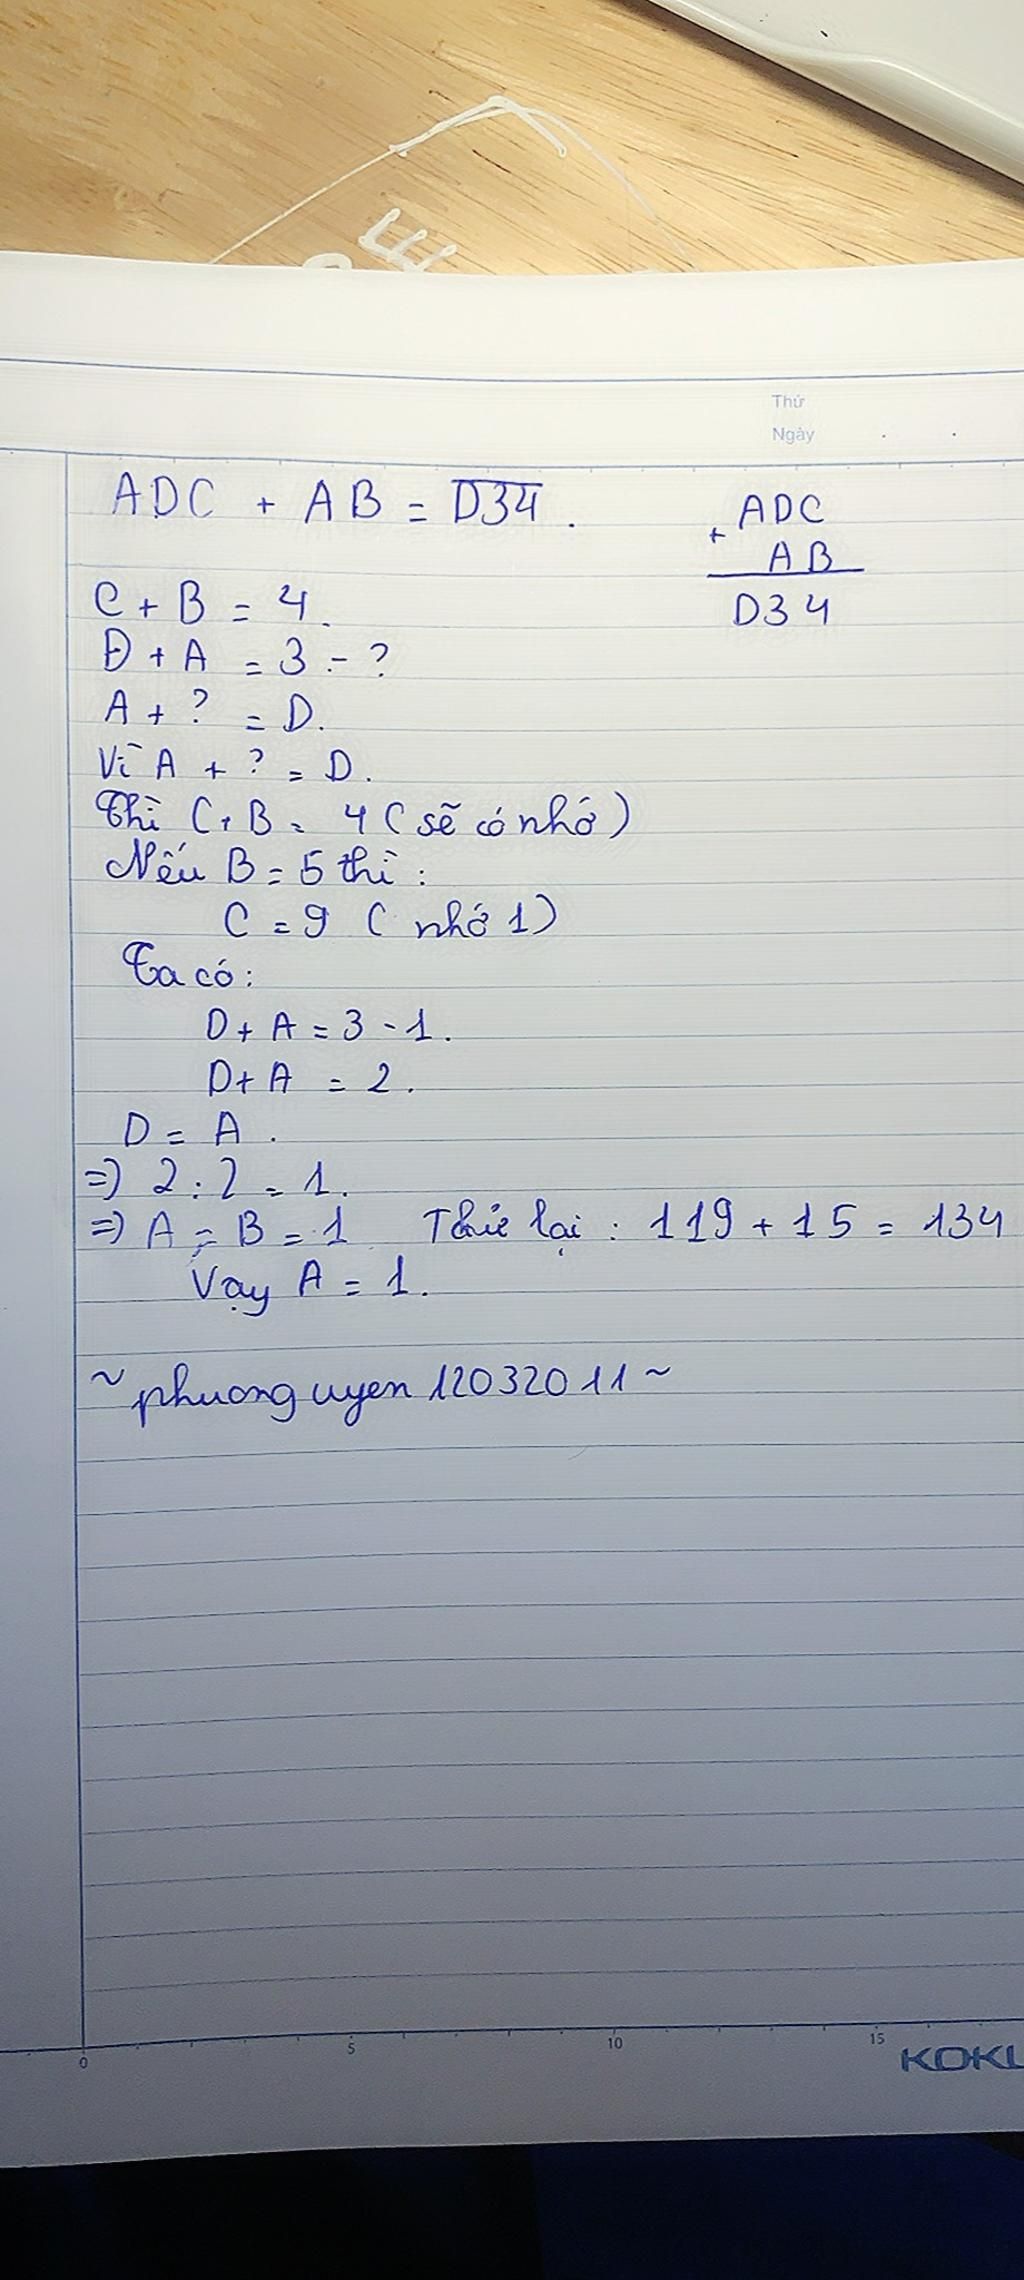 Thứ
Ngày
ADC + AB = D34.
ADC
+ AB
D34
C + B = 4.
Đ + A = 3 - ?
A + ? = D.
Vì A + ? = D.
Thì C + B = 4 ( sẽ có nhớ )
Nếu B = 5 thì :
C = 9 ( nhớ 1 )
Ta có :
D + A = 3 - 1.
D + A = 2.
D = A.
=) 2 : 2 = 1.
=) A = B = 1 Thử lại : 119 + 15 = 134
Vậy A = 1.
~ phuong uyen 12032011 ~
0 5 10 15
KOKU